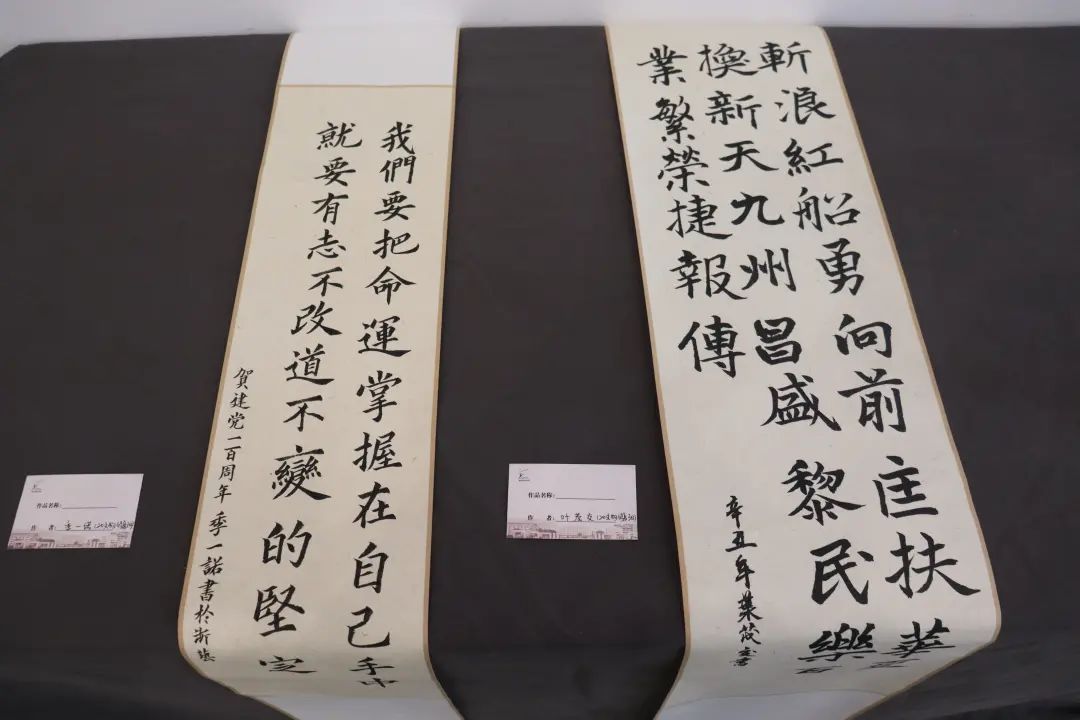 我們要把命運掌握在自己手中
就要有志不改道不變的堅定
賀建党一百周年 季一諾書於浙
作品名称：
作 者：季一诺
斬浪紅船勇向前匡扶華
換新天九州昌盛黎民樂
業繁榮捷報傳
辛丑年葉筱書
作品名称：
作 者：叶